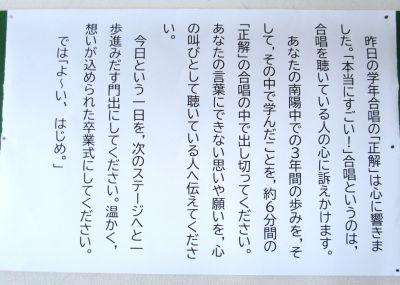 昨日の学年合唱の「正解」は心に響きま
した。「本当にすごい！」合唱というのは、
合唱を聴いている人の心に訴えかけます。
あなたの南陽中での３年間の歩みを，そ
して，その中で学んだことを，約６分間の
「正解」の合唱の中で出し切ってください。
あなたの言葉にできない思いや願いを，心
の叫びとして聴いている人へ伝えてくださ
い。
今日という一日を，次のステージへと一
歩進みだす門出にしてください。温かく，
想いが込められた卒業式にしてください。
では「よ～い，はじめ。」